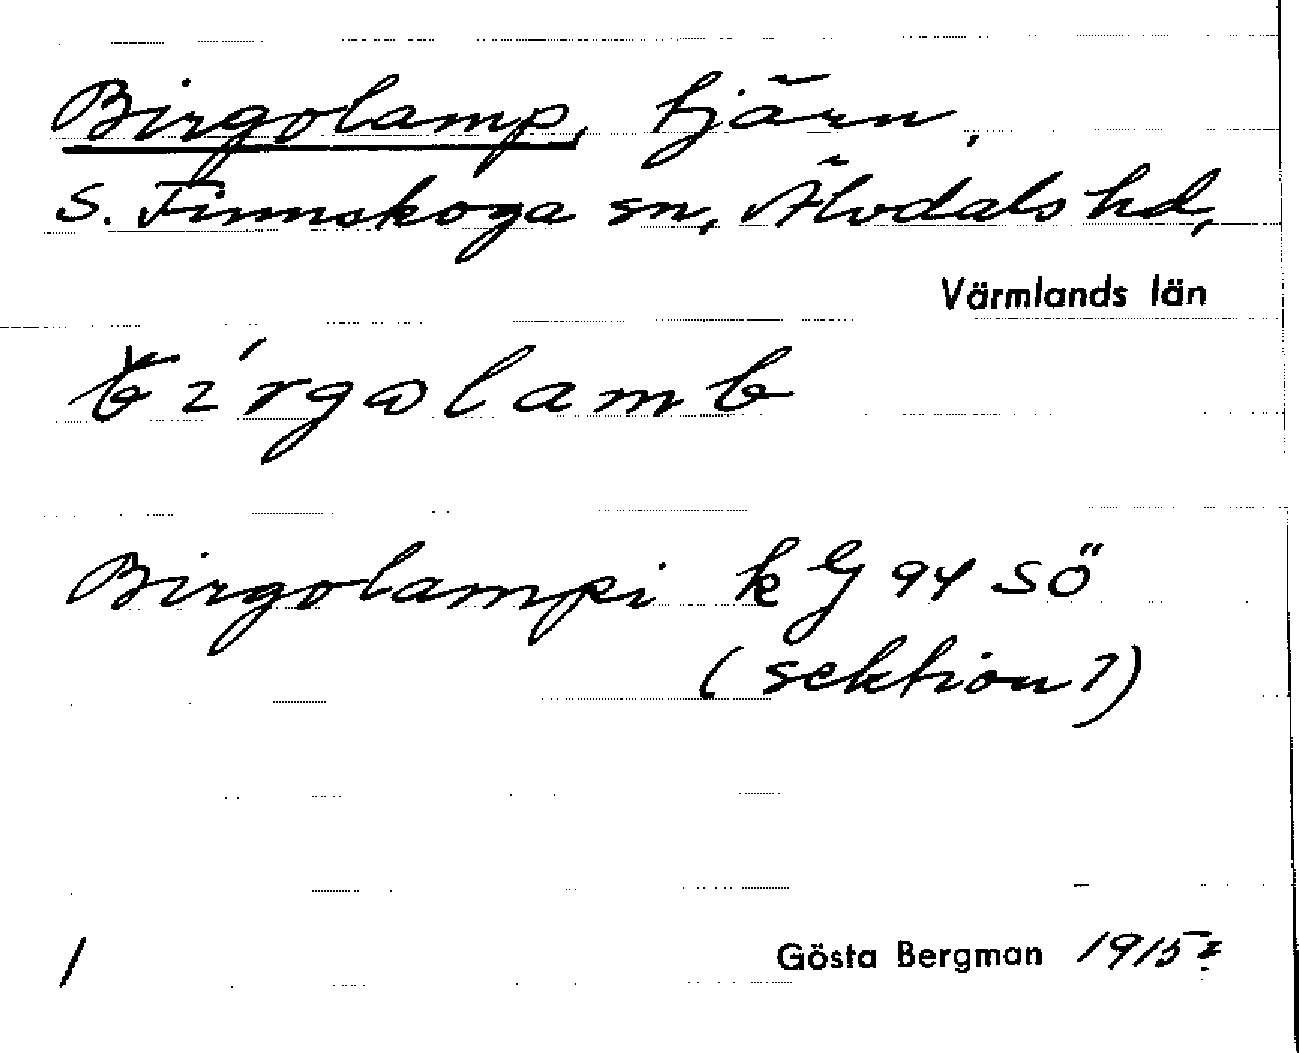 Birgolamp, tjärn,
S. Finnskoga sn, Älvdals hd,
Värmlands län
bírgωlamb
Birgolampi kG 94 SÖ
(sektion 1)
1
Gösta Bergman 1915